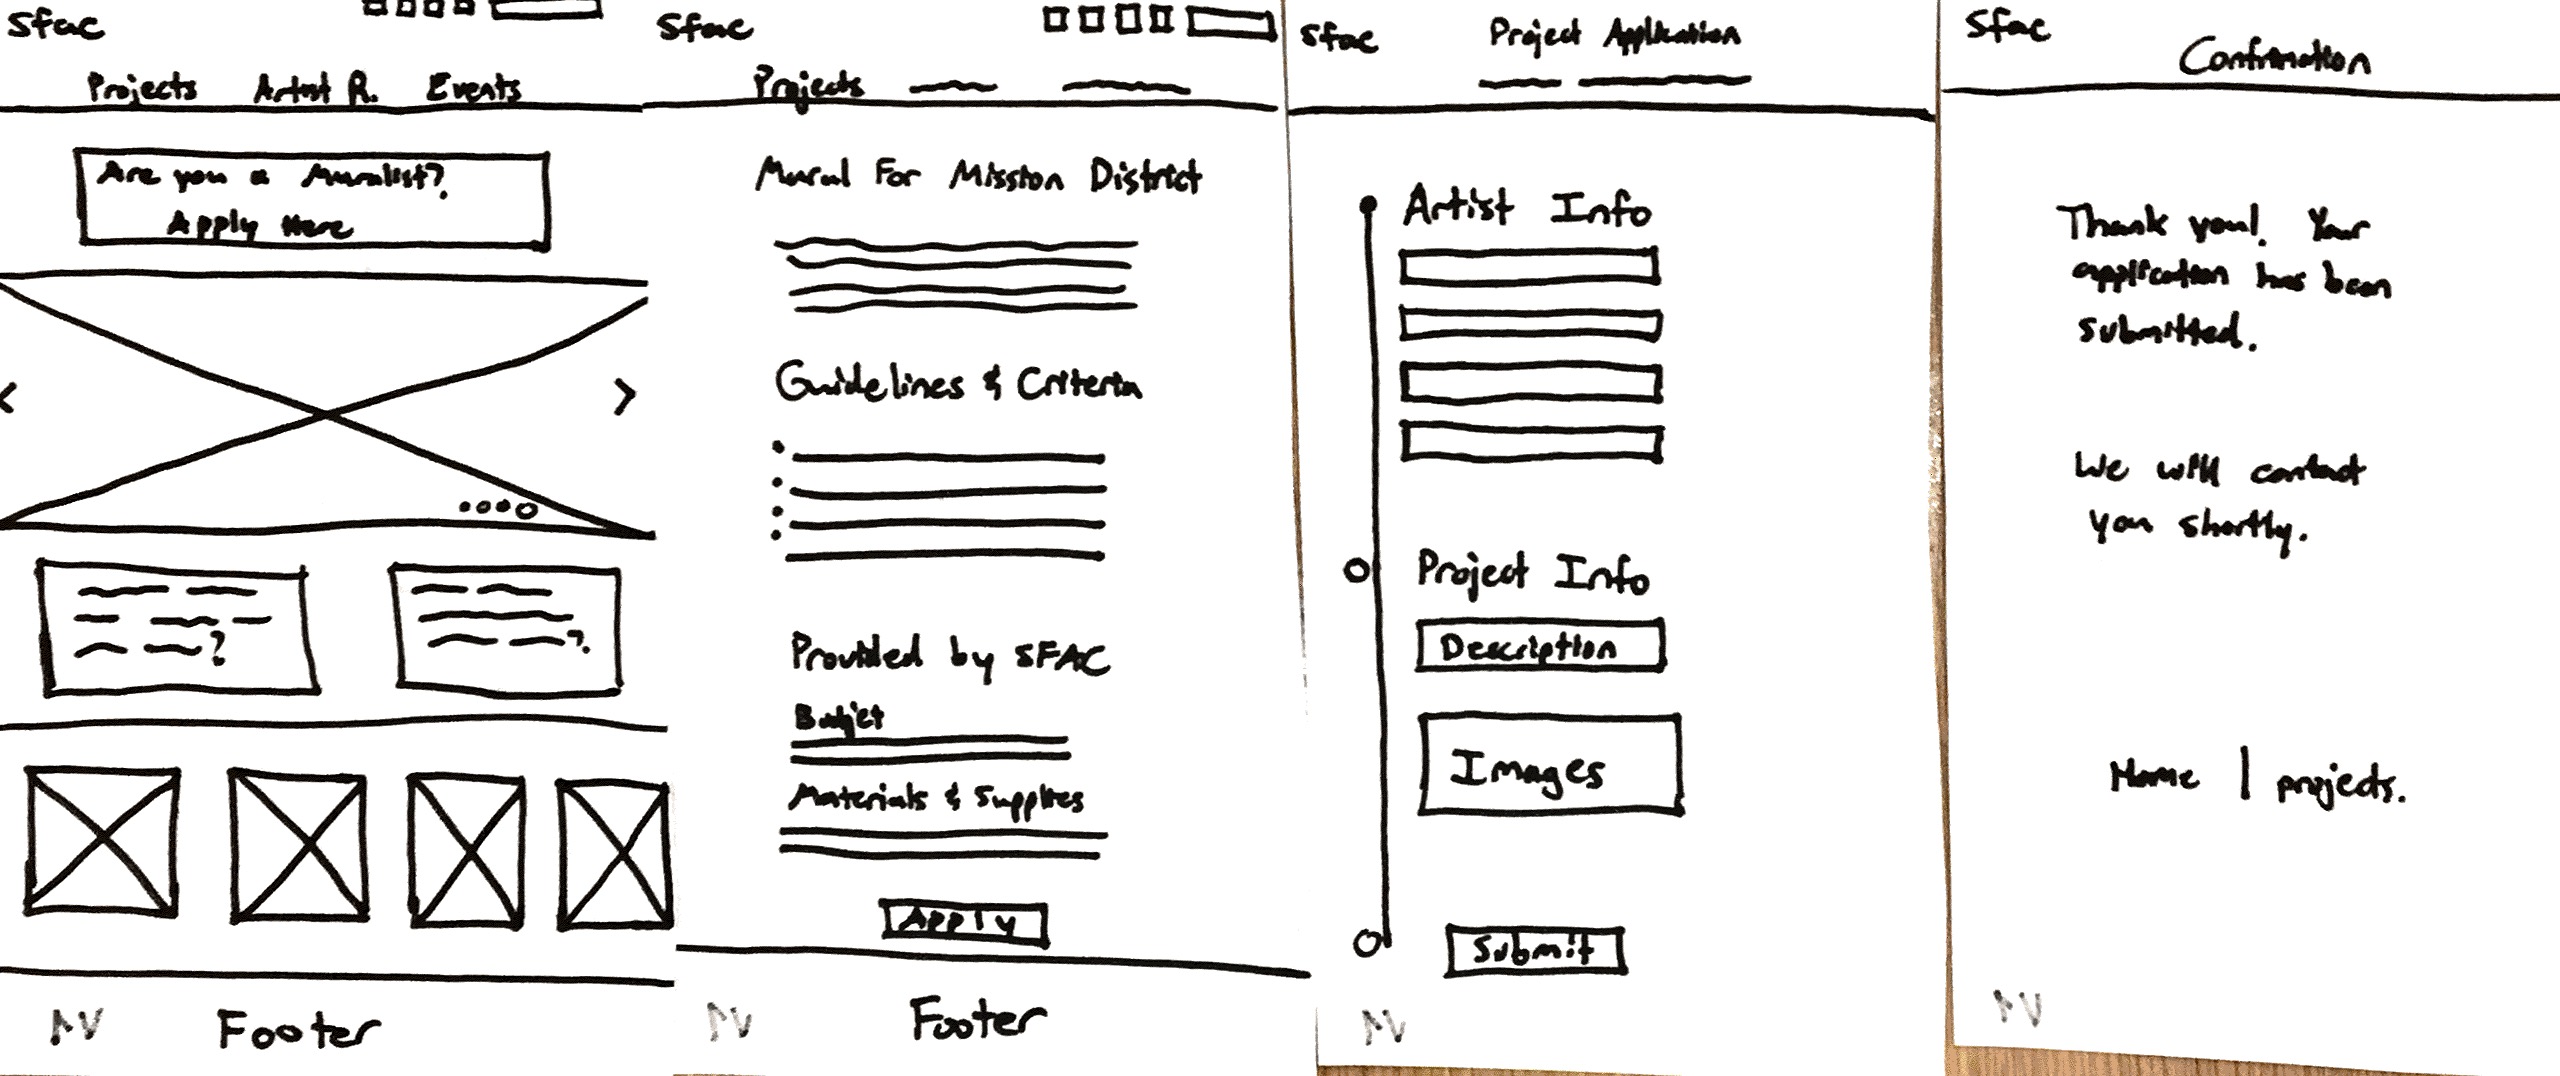 Sfac
Projects Artist R. Events
Are you a Muralist?
Apply Here
?
?
Footer
Sfac
Projects
Mural For Mission District
Guidelines & Criteria
Provided by SFAC
Budjet
Materials & Supplies
Apply
Footer
Sfac
Project Application
Artist Info
Project Info
Description
Images
Submit
Sfac
Confirmation
Thank you! Your
application has been
submitted.
We will contact
you shortly.
Home | projects.